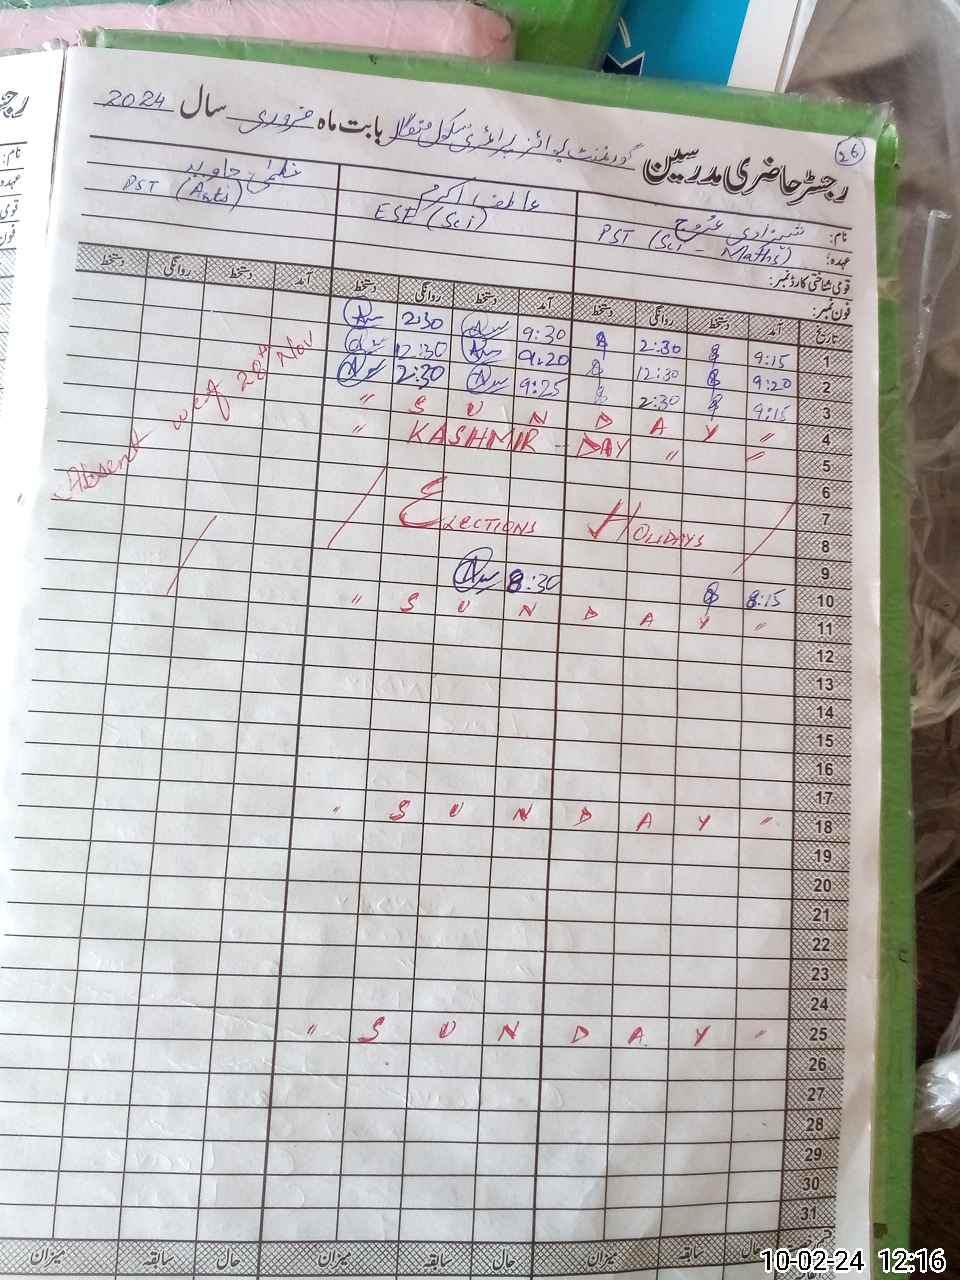 26
رجسٹر حاضری مدرسین گورنمنٹ بوائز پرائمری سکول بابت ماہ فروری سال 2024
نام: شہزادی عروج
عاطف اکرم
عظمیٰ جاوید
عہدہ: PST (Sci - Maths)
EST (Sci)
PST (Arts)
قومی شناختی کارڈ نمبر:
فون نمبر:
تاریخ آمد دستخط روانگی دستخط آمد دستخط روانگی دستخط آمد دستخط روانگی دستخط
1 9:15 2:30 9:30 2:30
2 9:20 12:30 9:20 12:30
3 9:15 2:30 9:25 2:30
4 " S U N D A Y "
5 " KASHMIR - DAY " "
6
7 ELECTIONS HOLIDAYS
8
9
10 8:15 8:30
11 " S U N D A Y "
12
13
14
15
16
17
18 " S U N D A Y "
19
20
21
22
23
24
25 " S U N D A Y "
26
27
28
29
30
31
Absent w.e.f 28th Nov
حال سابقہ میزان حال سابقہ میزان حال سابقہ میزان
10-02-24 12:16